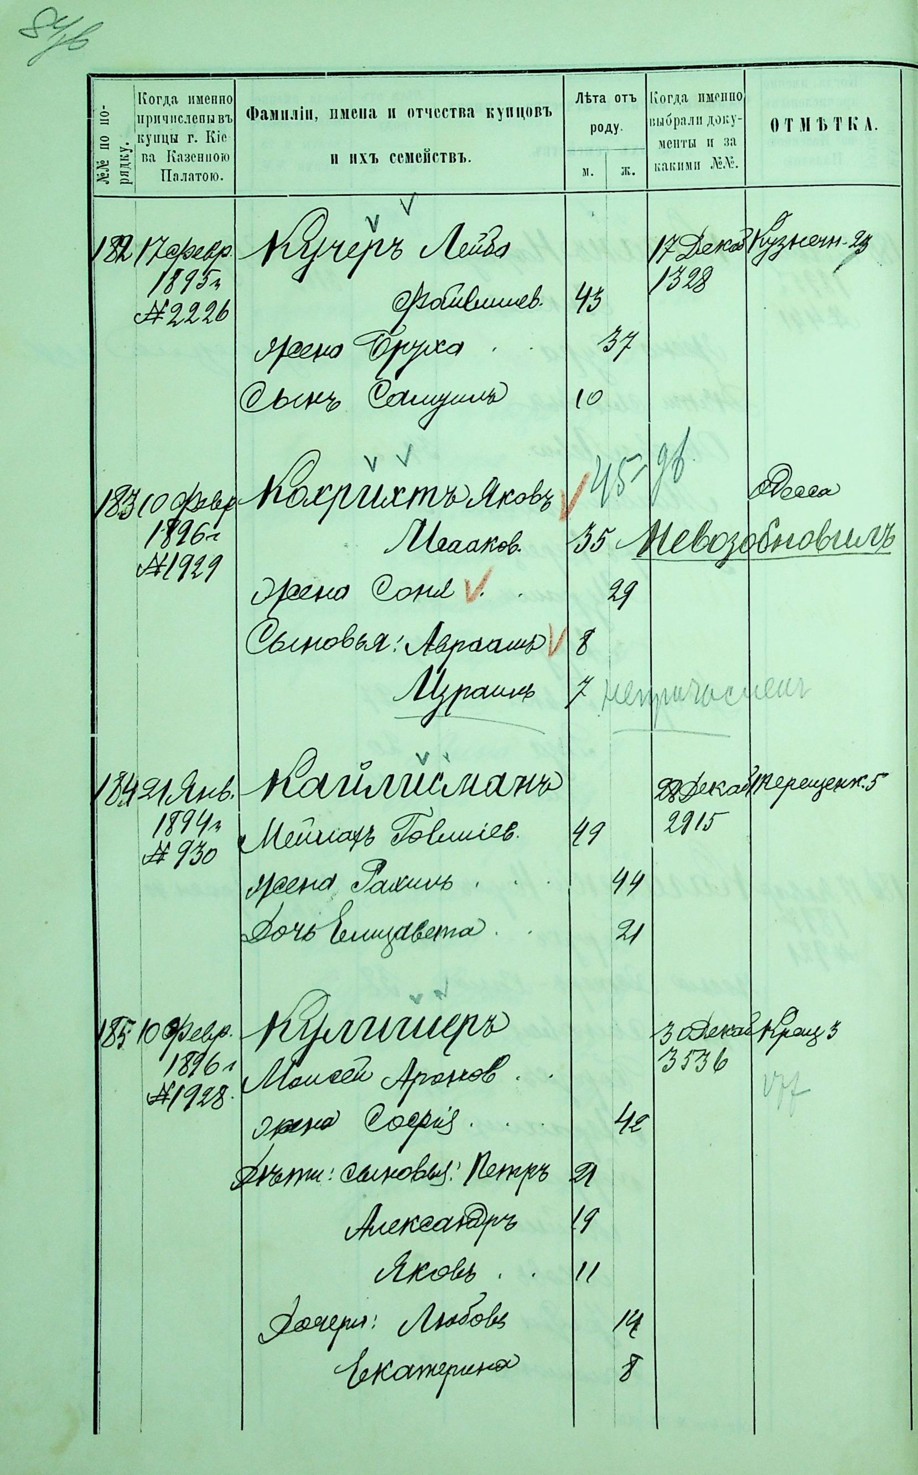 №№ по по-
рядку.
Когда именно
причислены въ
купцы г. Кіе-
ва Казенною
Палатою.
Фамиліи, имена и отчества купцовъ
и ихъ семействъ.
Лѣта отъ
роду.
м. ж.
Когда именно
выбрали доку-
менты и за
какими №№.
ОТМѢТКА.
182 17 Февр. Кучеръ Лейба 17 Декаб Кузнечн. 23
1895 г 1328
№ 2226 Файвишев. 43
жена Бруха 37
Сынъ Самуилъ 10
45 - дв.
183 10 Февр Кохрихтъ Яковъ Одесса
1896 г Исааков. 35 Невозобновилъ
№ 1929
жена Соня 29
Сыновья: Авраамъ 8
Израиль 7 непричислен
184 21 Янв. Кайлисманъ 28 Декаб Терещенк. 5
1894 г Мейлахъ 49 2915
№ 930
жена Рахиль 44
Дочь Елизавета 21
185 10 Февр. Кулишеръ 3 Декаб Крещ 3
1896 г Моисей Аронов 3536
№ 1928
жена Софія 42
Дѣти: сыновья: Петръ 21
Александръ 19
Яковъ 11
Дочери: Любовь 14
Екатерина 8